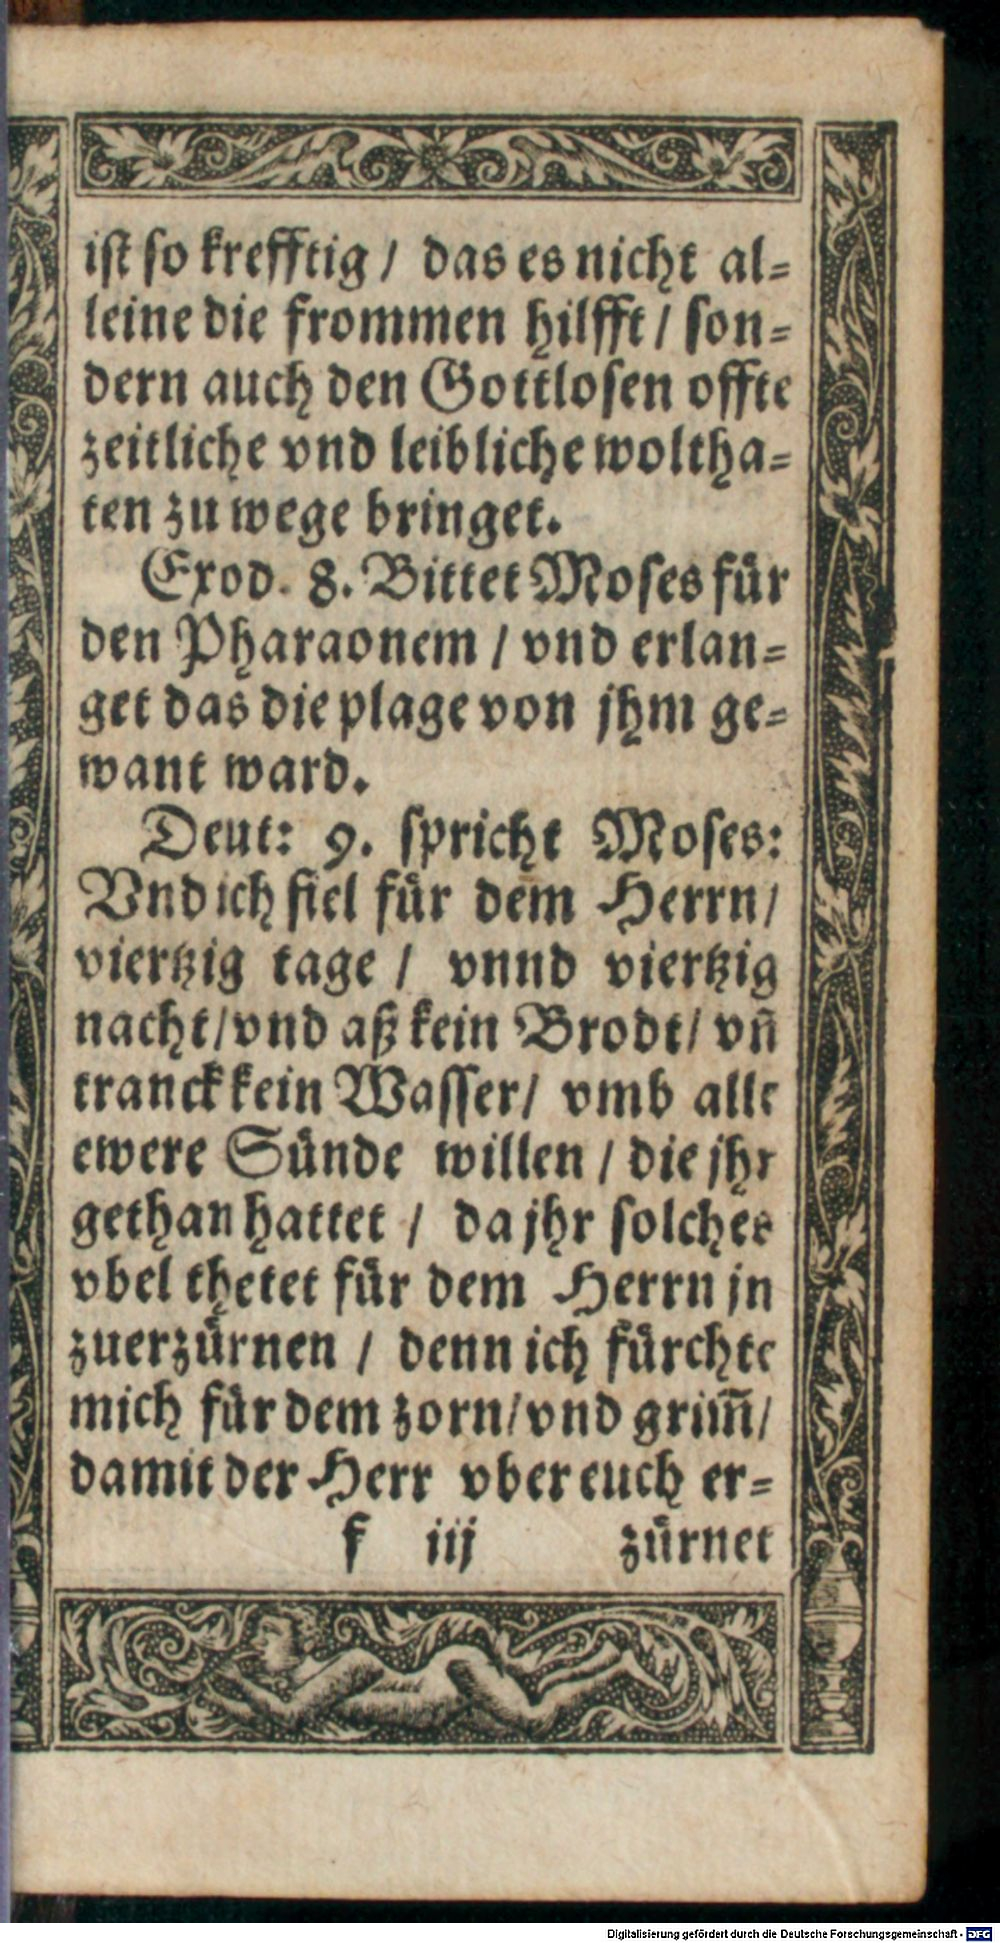 ist so krefftig / das es nicht al-
leine die frommen hilfft / son-
dern auch den Gottlosen offte
zeitliche vnd leibliche woltha-
ten zu wege bringet.
Exod. 8. Bittet Moses für
den Pharaonem / vnd erlan-
get das die plage von jhm ge-
want ward.
Deut: 9. spricht Moses:
Vnd ich fiel für dem Herrn /
viertzig tage / vnnd viertzig
nacht / vnd aß kein Brodt / vn̄
tranck kein Wasser / vmb alle
ewere Sünde willen / die jhr
gethan hattet / da jhr solches
vbel thetet für dem Herrn jn
zuerzürnen / denn ich fürchte
mich für dem zorn / vnd grim̄ /
damit der Herr vber euch er-
f iij zürnet
Digitalisierung gefördert durch die Deutsche Forschungsgemeinschaft - DFG